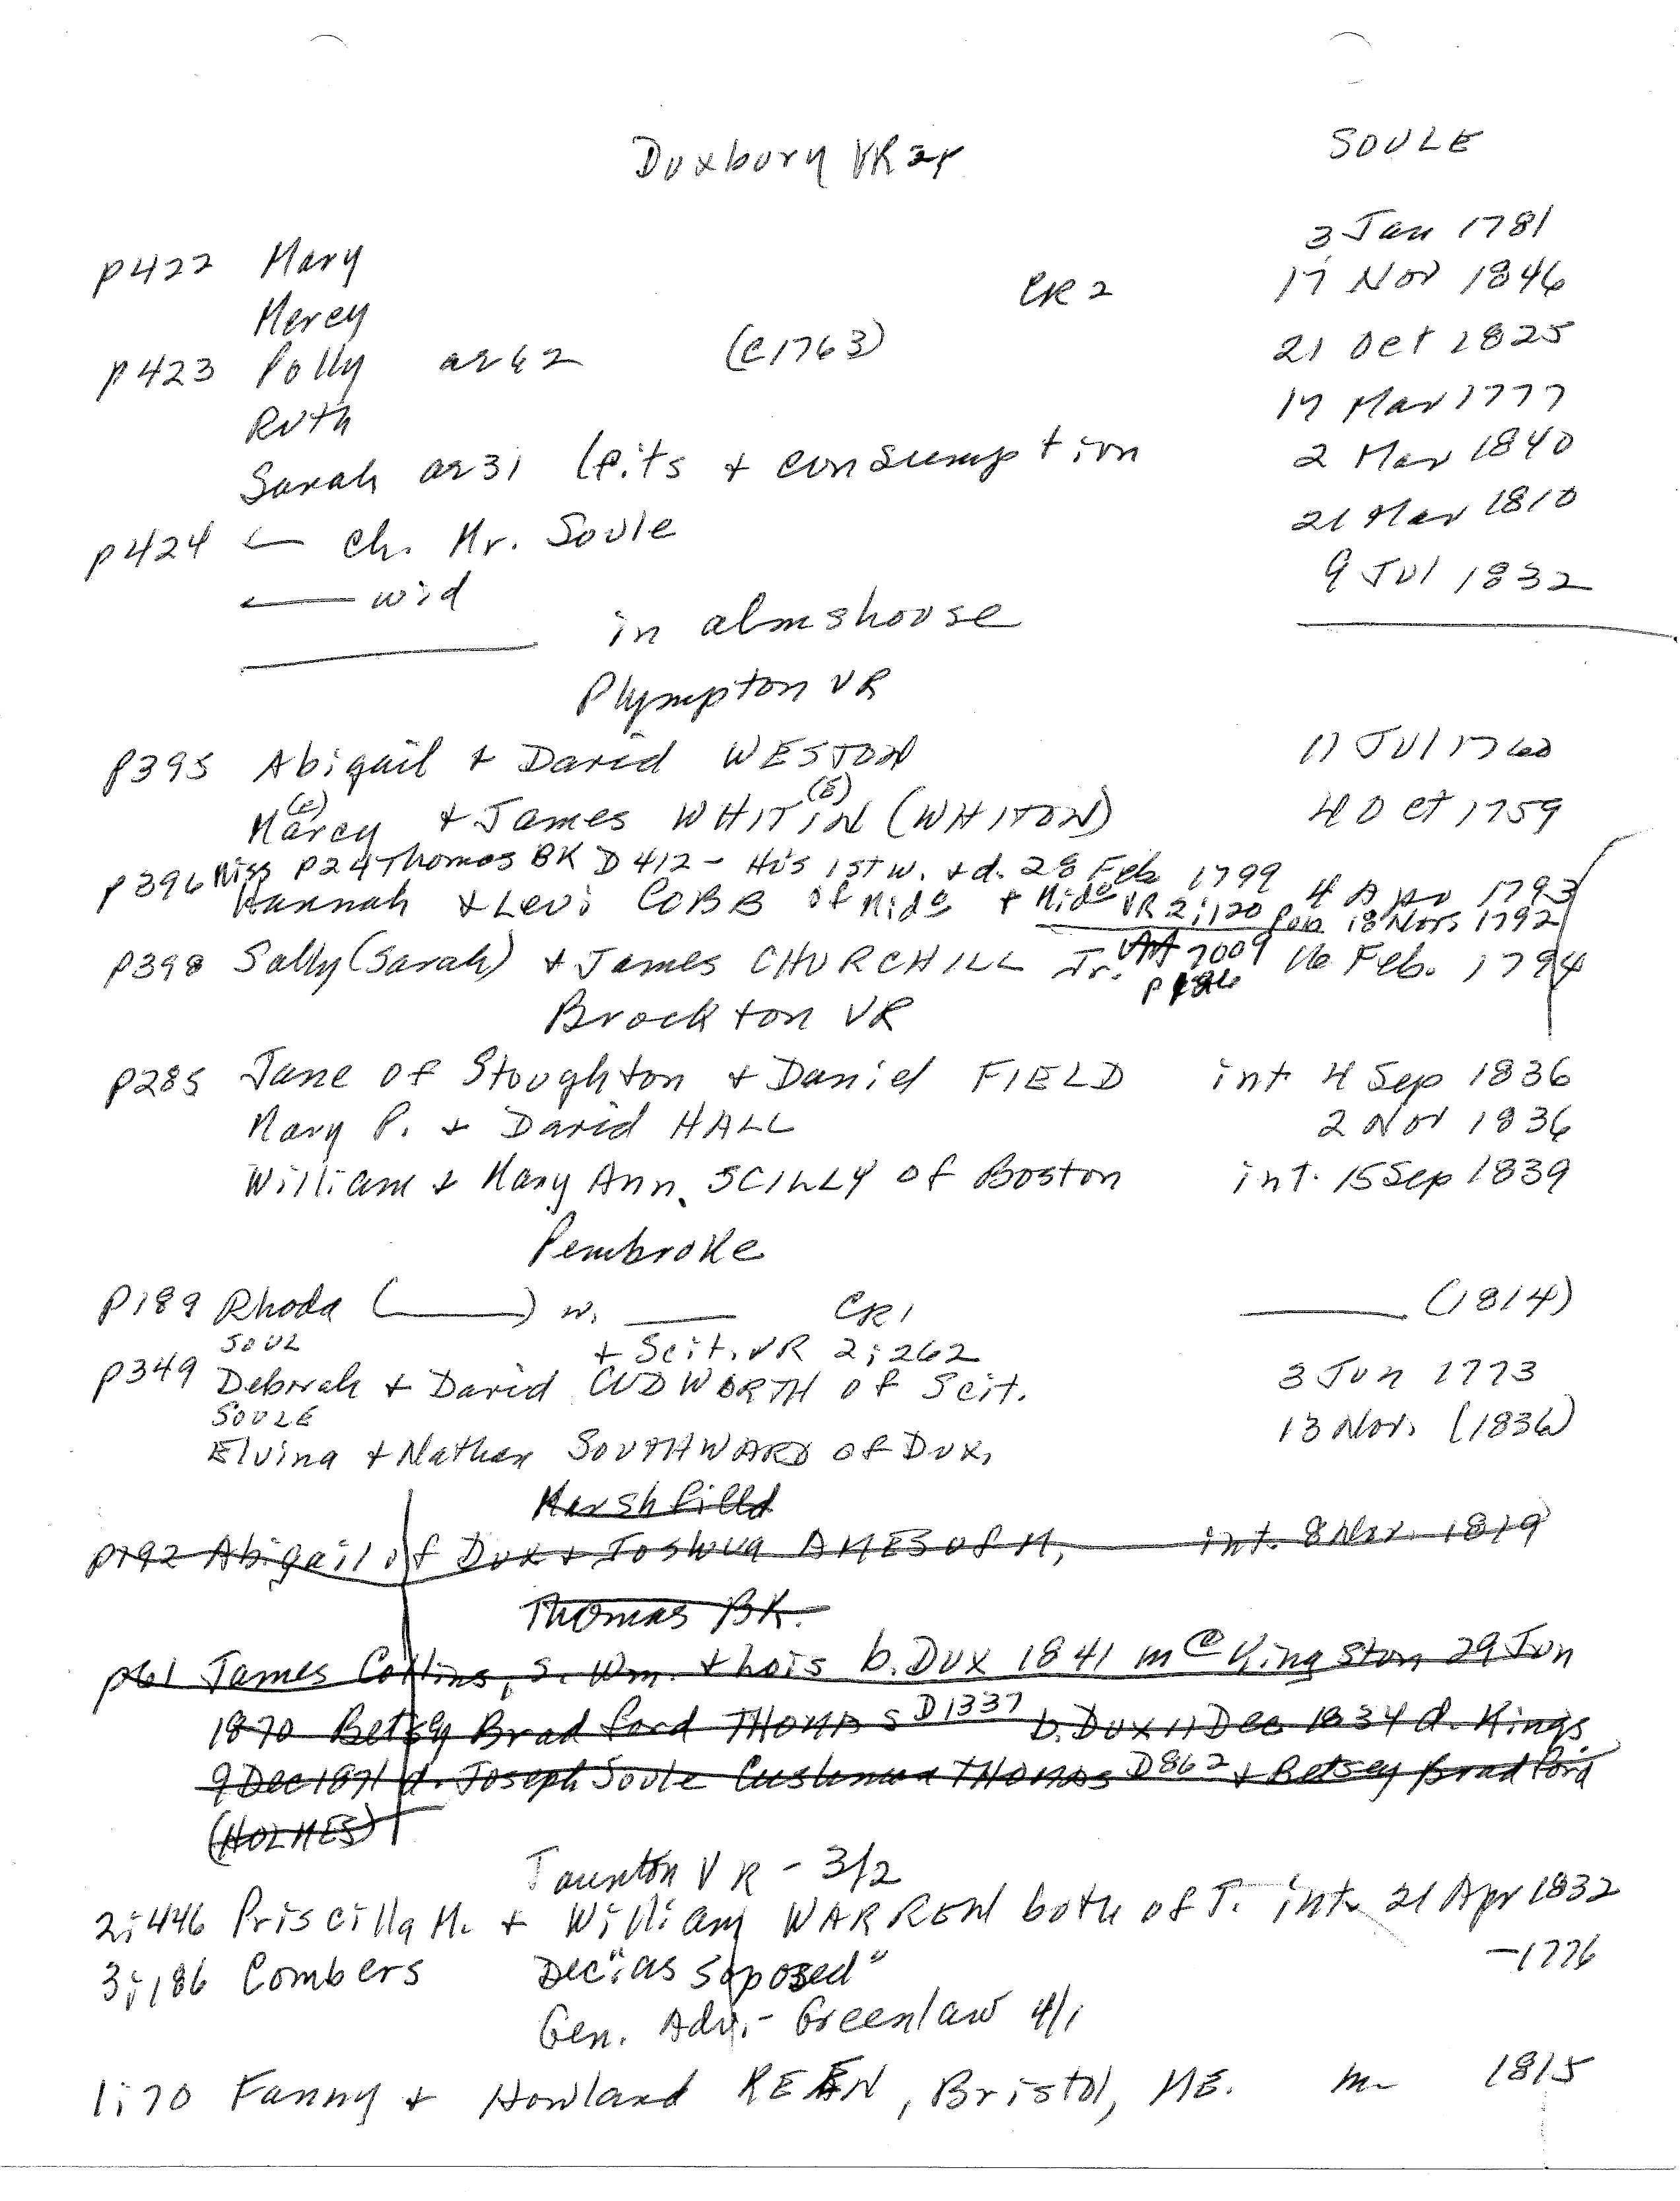 SOULE
Duxbury VR
p422 Mary 3 Jan 1781
Mercy CR 2 17 Nov 1846
p423 Polly ae 62 (C1763) 21 Oct 1825
Ruth 17 Mar 1777
Sarah ae 31 (fits + consumption 2 Mar 1840
p424 ← ch. Mr. Soule 21 Mar 1810
← wid 9 Jul 1832
in almshouse
Plympton VR
p395 Abigail + David WESTON 11 Jul 1760
(e) (E)
Marcy + James WHITIN (WHITON) 4 Oct 1759
p396 Miss P24 Thomas BK D 412 - His 1st w. + d. 28 Feb 1799
Hannah + Levi COBB of Mido + Mido VR 2;120 4 Apr 1793
pub 18 Nov 1792
p398 Sally (Sarah) + James CHURCHILL Jr. 7009 16 Feb. 1794
Brockton VR
p285 Jane of Stoughton + Daniel FIELD int 4 Sep 1836
Mary P. + David HALL 2 Nov 1836
William + Mary Ann SCILLY of Boston int. 15 Sep 1839
Pembroke
p189 Rhoda (____) w. ____ CR1 ____ (1814)
SOUL + Scit. VR 2;262
p349 Deborah + David CUDWORTH of Scit. 3 Jun 1773
SOULE
Elvina + Nathan SOUTHWARD of Dux, 13 Nov. (1836)
Marshfilld
p192 Abigail of Dux + Joshua AMES of M, int. 8 Nov. 1819
Thomas BK.
p61 James Collins, s. Wm. + Lois b. Dux 1841 m @ Kingston 29 Jun
1870 Betsey Bradford THOMAS D1337 b. Dux 11 Dec 1834 d. Kings.
9 Dec 1871 d. Joseph Soule Cushman THOMAS D862 + Betsey Bradford
(HOLMES)
Taunton VR - 3/2
2;446 Priscilla M. + William WARREN both of T. int. 21 Apr 1832
3;186 Combers Dec "as soposed" -1776
Gen. Adv. - Greenlaw 4/1
1;70 Fanny + Howland KEEN, Bristol, ME. m- 1815